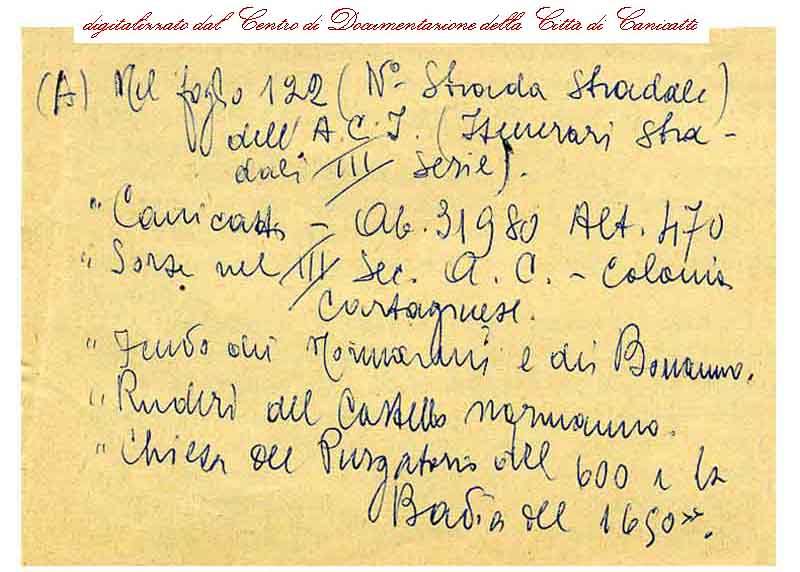 digitalizzato dal Centro di Documentazione della Città di Canicattì
(A) Nel foglio 122 (N° Strada Stradale)
dell'A.C.I. (Itinerari Stra-
dali III Serie).
"Canicattì - Ab. 31980 Alt. 470
"Sorse nel III Sec. A.C. - Colonia
Cartaginese.
"Feudo dei Normanni e dei Bonanno.
"Ruderi del Castello normanno.
"Chiesa del Purgatorio del 600 e la
Badia del 1650".